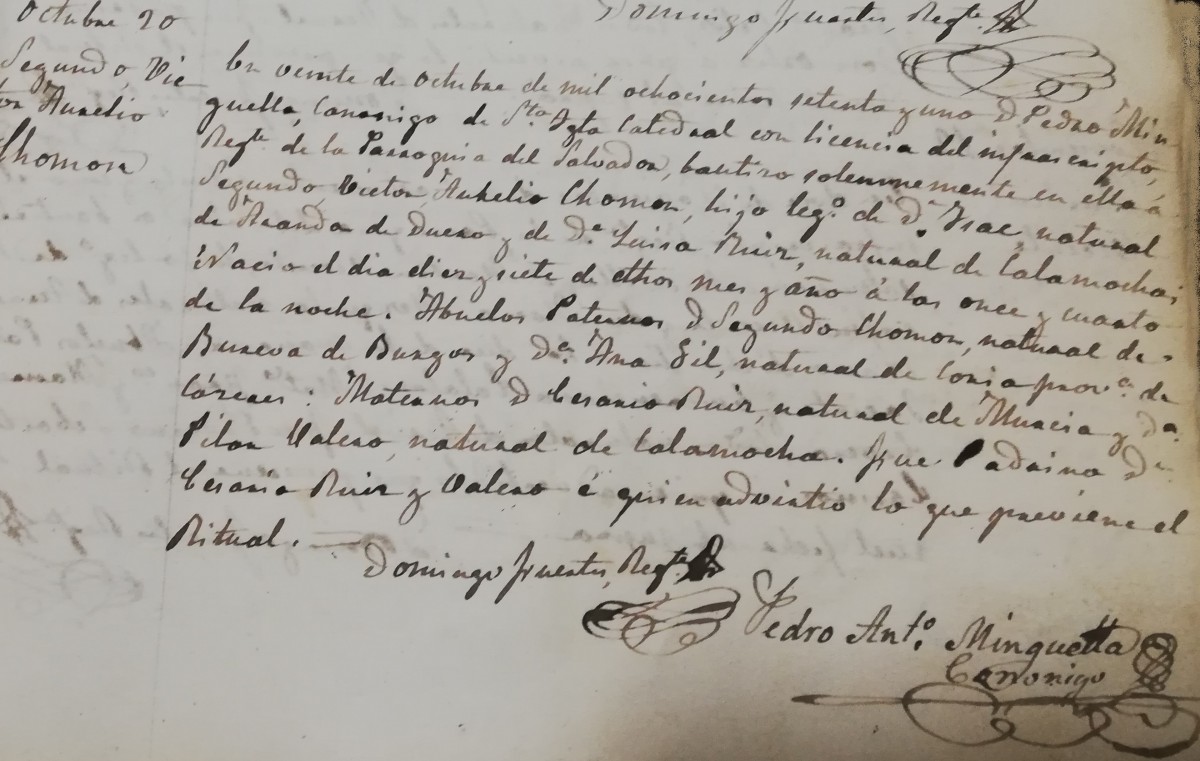 Domingo Fuertes, Regte.
Octubre 20
Segundo, Vic-
tor Aurelio
Chomon
En veinte de Octubre de mil ochocientos setenta y uno D. Pedro Min-
guella, Canonigo de Sta. Igla Catedral con licencia del infrascripto,
Regte. de la Parroquia del Salvador, bautizo solemnemente en ella á
Segundo, Victor, Aurelio Chomon, hijo lego. de D. Isac, natural
de Aranda de Duero y de Da. Luisa Ruiz, natural de Calamocha:
Nacio el dia diez y siete de dhos mes y año á las once y cuarto
de la noche. Abuelos Paternos D. Segundo Chomon, natural de
Bureva de Burgos y Da. Ana Gil, natural de Coria prova. de
Cáceres: Maternos D. Cesareo Ruiz, natural de Murcia y Da.
Pilar Valero, natural de Calamocha. Fue Padrino Da.
Cesarea Ruiz y Valero á quien advirtio lo que previene el
Ritual.
Domingo Fuertes, Regte.
Pedro Anto. Minguella
Canonigo